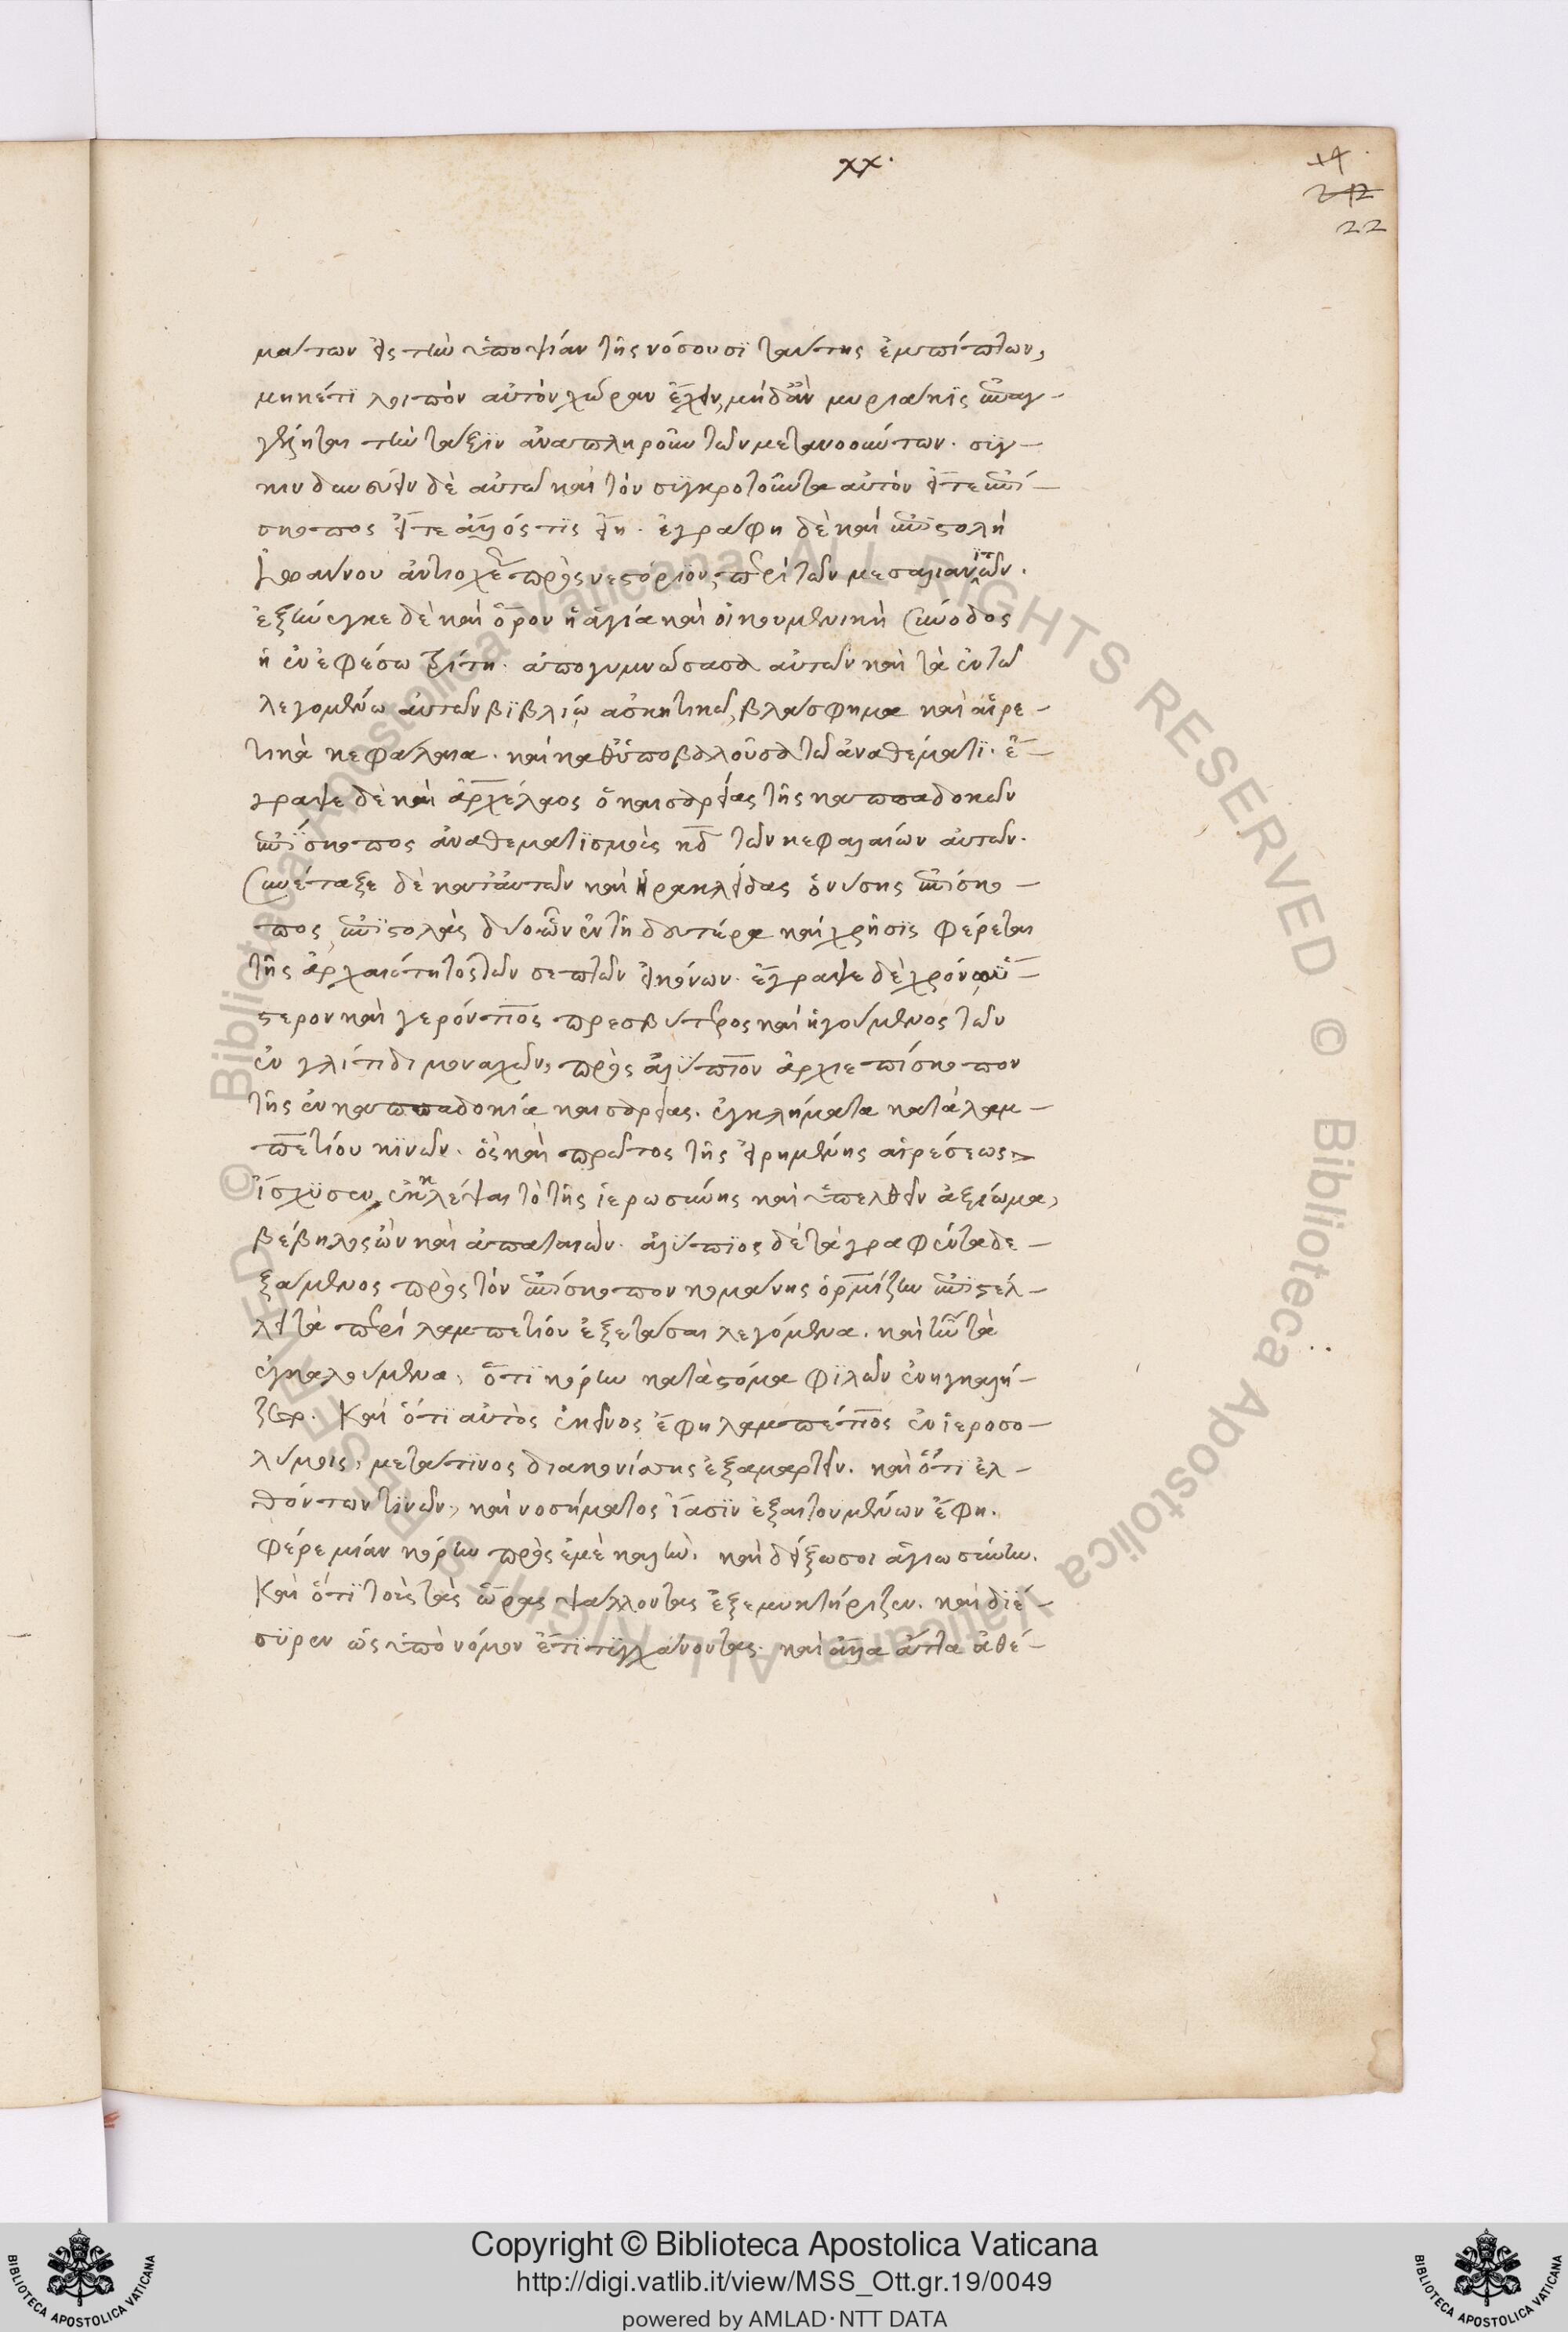 xx.
14.
242
22
μάτων εἰς τὴν ὑποψίαν τῆς νόσου σϊ ταύτης ἐμπίπτων,
μηκέτι λοιπὸν αὐτὸν χώραν ἔχειν, μηδ' ἂν μυριάκις ἐπαγ-
γέλληται τὴν τάξϊν ἀναπληροῦν τῶν μετανοούντων. συγ-
κινδυνεύειν δὲ αὐτῶ καὶ τὸν συγκροτοῦντα αὐτὸν εἴτε ἐπί-
σκοπος εἴτε ἄλλός τϊς εἴη. ἐγράφη δὲ καὶ ἐπϊστολὴ
Ἰωάννου ἀντιοχεί πρὸς νεστόριον, περὶ τῶν μεσαλιανϊτῶν.
ἐξήνεγκε δὲ καὶ ὅρον ἡ ἁγία καὶ οἰκουμενικὴ σύνοδος
ἡ ἐν ἐφέσω τρίτη. ἀπογυμνώσασα αὐτῶν καὶ τὰ ἐν τῶ
λεγομένω αὐτῶν βϊβλίω ἀσκητικῶ, βλάσφημα καὶ αἱρε-
τικὰ κεφάλαια. καὶ καθυποβαλοῦσα τῶ ἀναθέματϊ. ἔ-
γραψε δὲ καὶ ἀρχέλαος ὁ καισαρείας τῆς καππαδοκῶν
ἐπίσκοπος ἀναθεματϊσμοὺς κδ τῶν κεφαλαίων αὐτῶν.
Συνέταξε δὲ κατ' αὐτῶν καὶ ἡρακλείδας ὁ νύσης ἐπίσκο-
πος, ἐπϊστολὰς δύο ὧν ἐν τῆ δευτέρα καὶ χρῆσϊς φέρεται
τῆς ἀρχαιότητος τῶν σεπτῶν εἰκόνων. ἔγραψε δὲ χρόνω ὕ-
στερον καὶ γερόντιος πρεσβύτερος καὶ ἡγούμενος τῶν
ἐν γλίτιδι μοναχῶν, πρὸς ἀλύπιον ἀρχιεπίσκοπον
τῆς ἐν καππαδοκία καισαρείας. ἐγκλήματα κατὰ λαμ-
πετίου κϊνῶν. ὃς καὶ πρῶτος τῆς εἰρημένης αἱρέσεως
ἴσχϋσεν, ἐκκλέψαι τὸ τῆς ἱερωσύνης καὶ ὑπελθεῖν ἀξίωμα,
βέβηλος ὢν καὶ ἀπαταιών. ἀλύπϊος δὲ τὰ γραφέντα δε-
ξάμενος πρὸς τὸν ἐπίσκοπον κομάνης ὁρμίζην ἐπϊστέλ-
λει τὰ περὶ λαμπετίου ἐξετάσαι λεγόμενα. καὶ ἦν τὰ
ἐγκαλούμενα, ὅτϊ κόρην κατὰ στόμα φϊλῶν ἐνηγκαλί-
ζετο. Καὶ ὅτι αὐτὸς ἐκεῖνος ἔφη λαμπέτιος ἐν ἱεροσο-
λύμοις, μετά τϊνος διακονίσσης ἐξαμαρτεῖν. καὶ ὅτϊ ἐλ-
θόντων τϊνῶν, καὶ νοσήματος ἴασϊν ἐξαιτουμένων ἔφη.
φέρε μίαν κόρην πρὸς ἐμὲ καλὴν. καὶ δείξω σοι ἁγιωσύνην.
Καὶ ὅτϊ τοὺς τὰς ὥρας ψάλλοντας ἐξεμυκτήριζεν. καὶ δϊέ-
συρεν ὡς ὑπὸ νόμον ἔτϊ τυγχάνοντας. καὶ ἄλλα ἄττα ἀθέ-
Copyright © Biblioteca Apostolica Vaticana
http://digi.vatlib.it/view/MSS_Ott.gr.19/0049
powered by AMLAD·NTT DATA